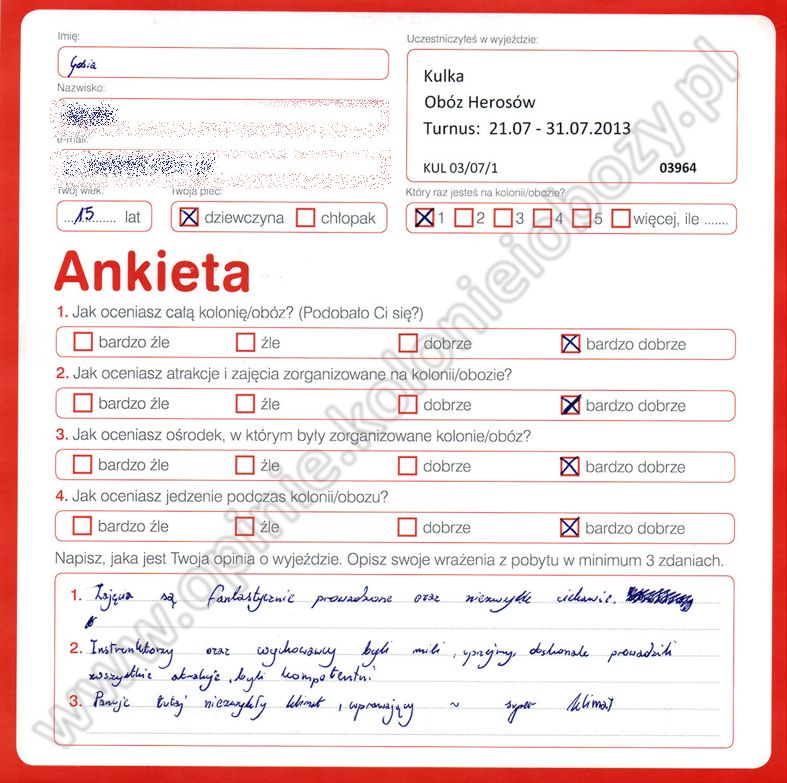 Imię:
Gosia
Uczestniczyłeś w wyjeździe:
Kulka
Obóz Herosów
Turnus: 21.07 - 31.07.2013
KUL 03/07/1 03964
Nazwisko:
e-mail:
Twój wiek: Twoja płeć: Który raz jesteś na kolonii/obozie?
15 lat dziewczyna chłopak 1 2 3 4 5 więcej, ile .......
Ankieta
1. Jak oceniasz całą kolonię/obóz? (Podobało Ci się?)
bardzo źle źle dobrze bardzo dobrze
2. Jak oceniasz atrakcje i zajęcia zorganizowane na kolonii/obozie?
bardzo źle źle dobrze bardzo dobrze
3. Jak oceniasz ośrodek, w którym były zorganizowane kolonie/obóz?
bardzo źle źle dobrze bardzo dobrze
4. Jak oceniasz jedzenie podczas kolonii/obozu?
bardzo źle źle dobrze bardzo dobrze
Napisz, jaka jest Twoja opinia o wyjeździe. Opisz swoje wrażenia z pobytu w minimum 3 zdaniach.
1. Zajęcia są fantastycznie prowadzone oraz niezwykle ciekawie.
2. Instruktorzy oraz wychowawcy byli mili, uprzejmy, doskonale prowadzili
wszystkie atrakcje, byli kompetentni
3. Panuje tutaj niezwykły klimat, wprawiający ~ super klimat
www.opinie.kolonieiobozy.pl